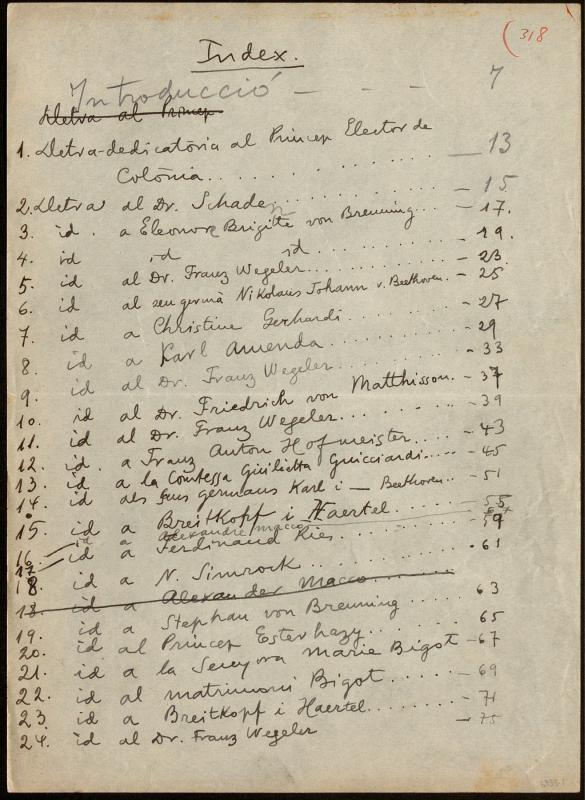 (318
Index.
Introducció - - - 7
Lletra al Príncep
1. Lletra-dedicatòria al Príncep Elector de
Colònia.. . . . . . . . . . . . — 13
2. Lletra al Dr. Schade. . . . . . . . . — 15
3. id. a Eleonore Brigitte von Breuning... — 17.
4. id id id. . . . . . . . - 19.
5. id al Dr. Franz Wegeler. . . . . . . - 23
6. id al seu germà Nikolaus Johann v. Beethoven.. - 25
7. id a Christine Gerhardi. . . . . . . - 27
8. id a Karl Amenda. . . . . . . . - 29
9. id al Dr. Franz Wegeler. . . . . . . - 33
10. id al Dr. Friedrich von Matthisson. - 37
11. id al Dr. Franz Wegeler. . . . . . . - 39
12. id. a Franz Anton Hofmeister. . . . - 43
13. id a la Comtessa Giulietta Guicciardi..... - 45
14. id als seus germans Karl i — Beethoven... - 51
15. id a Breitkopf i Haertel. . . . . - 55
16 id a Alexandre Macco
17 id a Ferdinand Ries - 59
18. id a N. Simrock. . . . . . . . . - 61
18. id a Alexander Macco. . . . . .
19. id a Stephan von Breuning . . . . . 63
20. id al Príncep Esterhazy. . . . . . 65
21. id a la Senyora Marie Bigot - 67
22. id al matrimoni Bigot. . . . . . - 69
23. id a Breitkopf i Haertel. . . . . . - 71
24. id al Dr. Franz Wegeler — 75